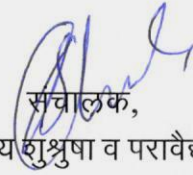 संचालक,
य शुश्रुषा व परावैद्य